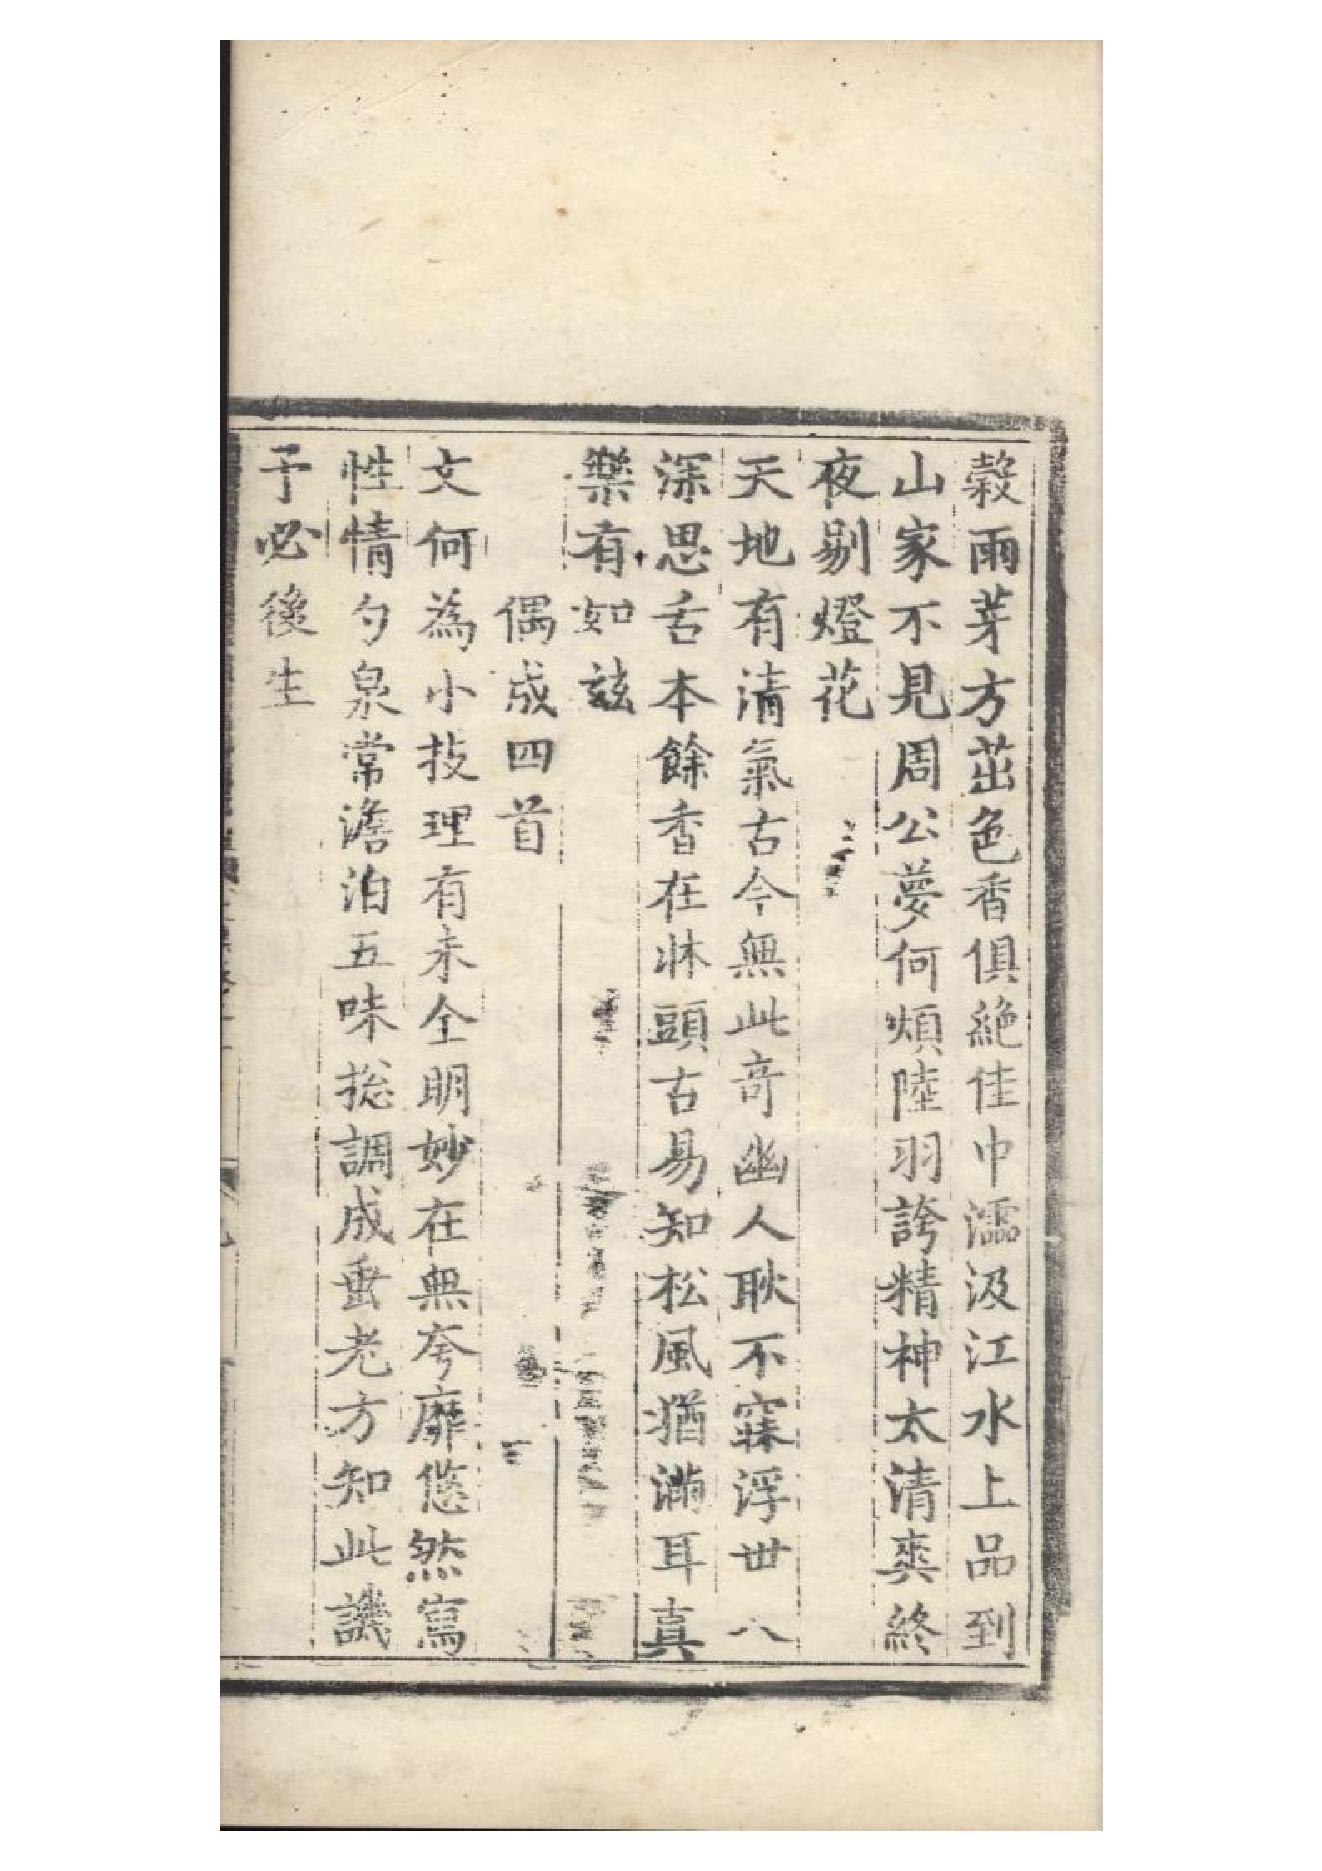 穀雨芽方茁色香俱絶佳中濡汲江水上品到
山家不見周公夢何煩陸羽誇精神太清爽終
夜剔燈花
天地有清氣古今無此奇幽人耿不寐浮世八
深思舌本餘香在牀頭古易知松風猶滿耳真
樂有如玆
偶成四首
文何為小技理有未全明妙在無夸靡悠然寫
性情勺泉常澹泊五味捴調成垂老方知此譏
予必後生